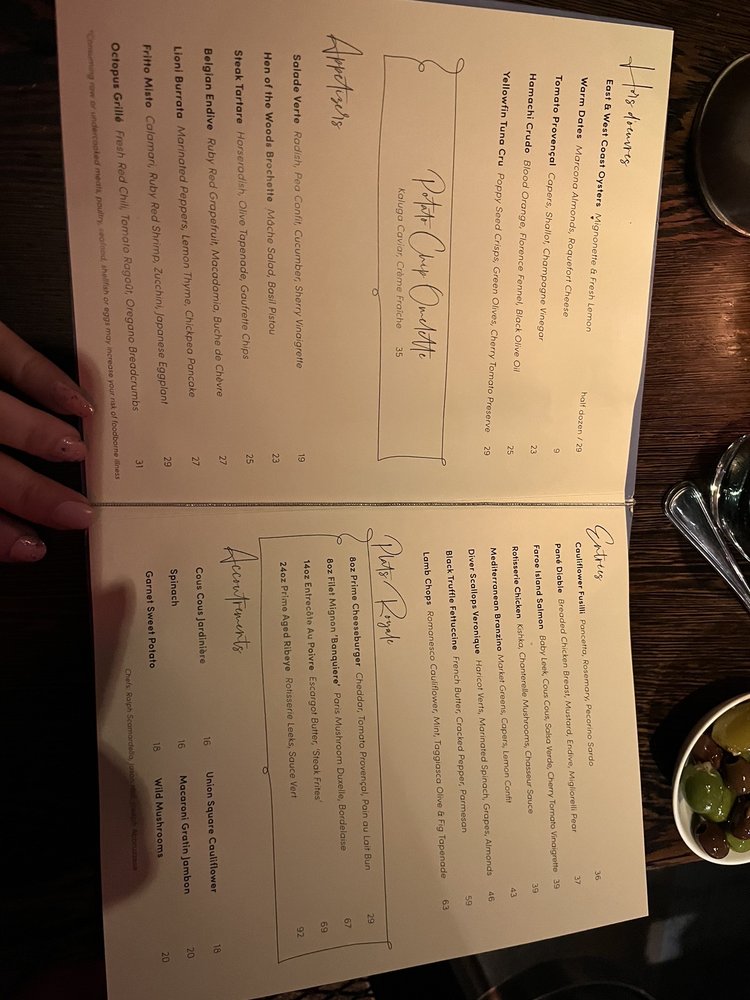 Hors d'oeuvres
East & West Coast Oysters Mignonette & Fresh Lemon half dozen / 29
Warm Dates Marcona Almonds, Roquefort Cheese 9
Tomato Provençal Capers, Shallot, Champagne Vinegar 23
Hamachi Crudo Blood Orange, Florence Fennel, Black Olive Oil 25
Yellowfin Tuna Cru Poppy Seed Crisps, Green Olives, Cherry Tomato Preserve 29
Potato Chip Omelette
Kaluga Caviar, Crème Fraîche 35
Appetizers
Salade Verte Radish, Pea Confit, Cucumber, Sherry Vinaigrette 19
Hen of the Woods Brochette Mâche Salad, Basil Pistou 23
Steak Tartare Horseradish, Olive Tapenade, Gaufrette Chips 25
Belgian Endive Ruby Red Grapefruit, Macadamia, Buche de Chèvre 27
Lioni Burrata Marinated Peppers, Lemon Thyme, Chickpea Pancake 27
Fritto Misto Calamari, Ruby Red Shrimp, Zucchini, Japanese Eggplant 29
Octopus Grillé Fresh Red Chili, Tomato Ragoût, Oregano Breadcrumbs 31
*Consuming raw or undercooked meats, poultry, seafood, shellfish or eggs may increase your risk of foodborne illness
Entrées
Cauliflower Fusilli Pancetta, Rosemary, Pecorino Sardo 36
Pané Diable Breaded Chicken Breast, Mustard, Endive, Migliorelli Pear 37
Faroe Island Salmon Baby Leek, Cous Cous, Salsa Verde, Cherry Tomato Vinaigrette 39
Rotisserie Chicken Kishka, Chanterelle Mushrooms, Chasseur Sauce 39
Mediterranean Branzino Market Greens, Capers, Lemon Confit 43
Diver Scallops Veronique Haricot Verts, Marinated Spinach, Grapes, Almonds 46
Black Truffle Fettuccine French Butter, Cracked Pepper, Parmesan 59
Lamb Chops Romanesco Cauliflower, Mint, Taggiasca Olive & Fig Tapenade 63
Plats Royale
8oz Prime Cheeseburger Cheddar, Tomato Provençal, Pain au Lait Bun 29
8oz Filet Mignon 'Banquiere' Paris Mushroom Duxelle, Bordelaise 67
14oz Entrecôte Au Poivre Escargot Butter, 'Steak Frites' 69
24oz Prime Aged Ribeye Rotisserie Leeks, Sauce Vert 92
Accoutrements
Cous Cous Jardinière 16 Union Square Cauliflower 18
Spinach 16 Macaroni Gratin Jambon 20
Garnet Sweet Potato 18 Wild Mushrooms 20
Chefs: Ralph Scamardella,